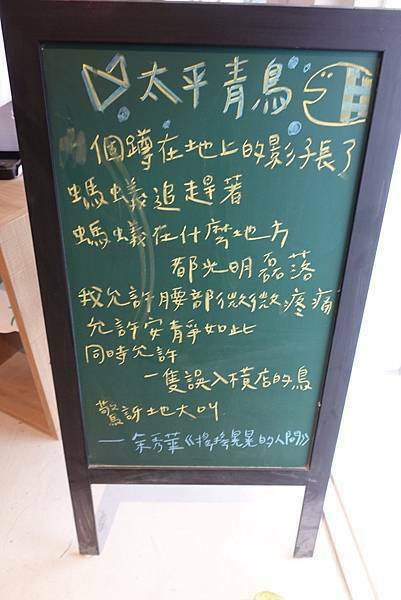 太平青鳥
一個蹲在地上的影子長了
螞蟻追趕著
螞蟻在什麼地方
都光明磊落
我允許腰部微微疼痛
允許安靜如此
同時允許
一隻誤入橫店的鳥
驚訝地大叫
—余秀華《搖搖晃晃的人間》